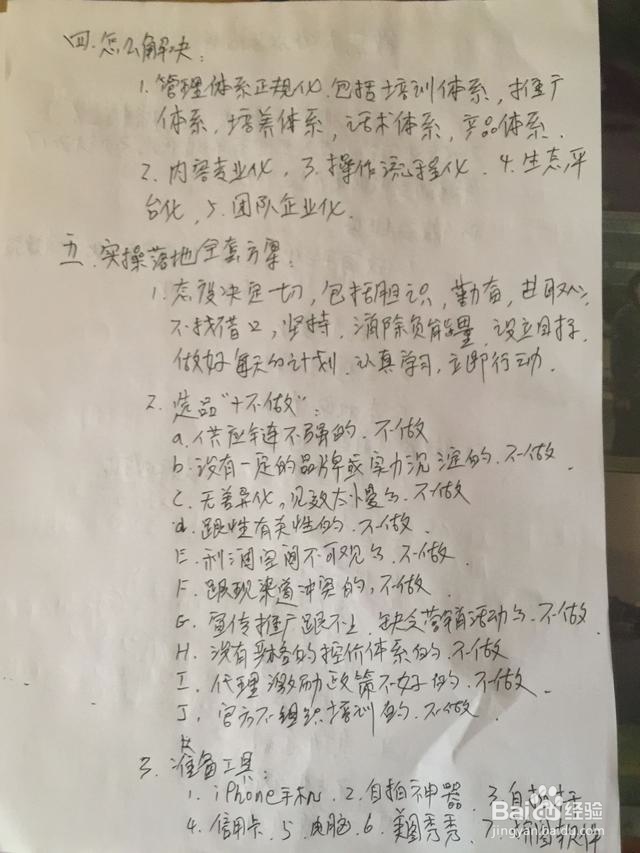 四.怎么解决:
1.管理体系正规化.包括培训体系,推广
体系,培养体系,话术体系,产品体系.
2.内容专业化,3.操作流程化.4.生态平
台化,5.团队企业化.
五.实操落地全套方案:
1.态度决定一切,包括胆识,勤奋,进取心,
不找借口,坚持,消除负能量,设立目标,
做好每天的计划,认真学习,立即行动.
2.选品"十不做":
a.供应链不强的.不做
b.没有一定的品牌或实力沉淀的.不做
C.无差异化,见效太慢的.不做
d.跟性有关性的.不做.
E.利润空间不可观的.不做.
F.跟现渠道冲突的,不做.
G.宣传推广跟不上.缺乏营销活动的.不做.
H.没有严格的控价体系的.不做
I.代理激励政策不好的.不做.
J.官方不组织培训的.不做.
3.准备工具:
1.iPhone手机.2.自拍神器.3.自拍杆
4.信用卡.5.电脑.6.美图秀秀.7.
Baidu经验
jingyan.baidu.com